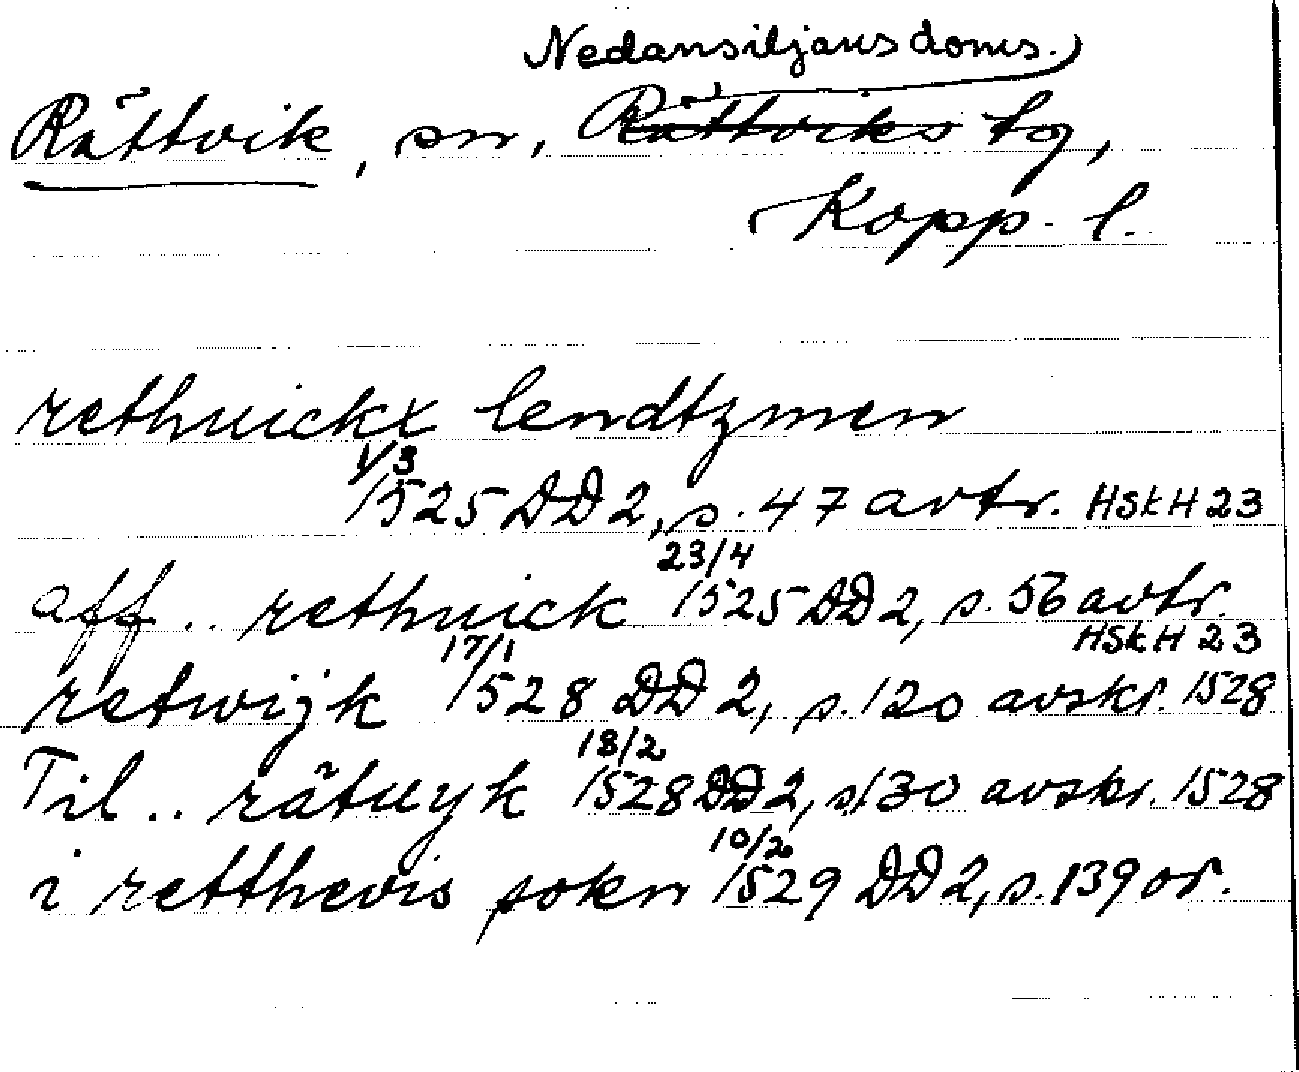 Nedansiljans doms.
Rättvik, sn, Rättviks tg,
Kopp. l.
rethuickx lendtzmen
1/3
1525 DD 2, s. 47 avtr. HSkH 23
23/4
aff .. rethuick 1525 DD 2, s. 56 avtr.
HSkH 23
17/1
retwijk 1528 DD 2, s. 120 avskr. 1528
18/2
Til .. rätuyk 1528 DD 2, s. 130 avskr. 1528
10/2
i retthevis sokn 1529 DD 2, s. 139 or.